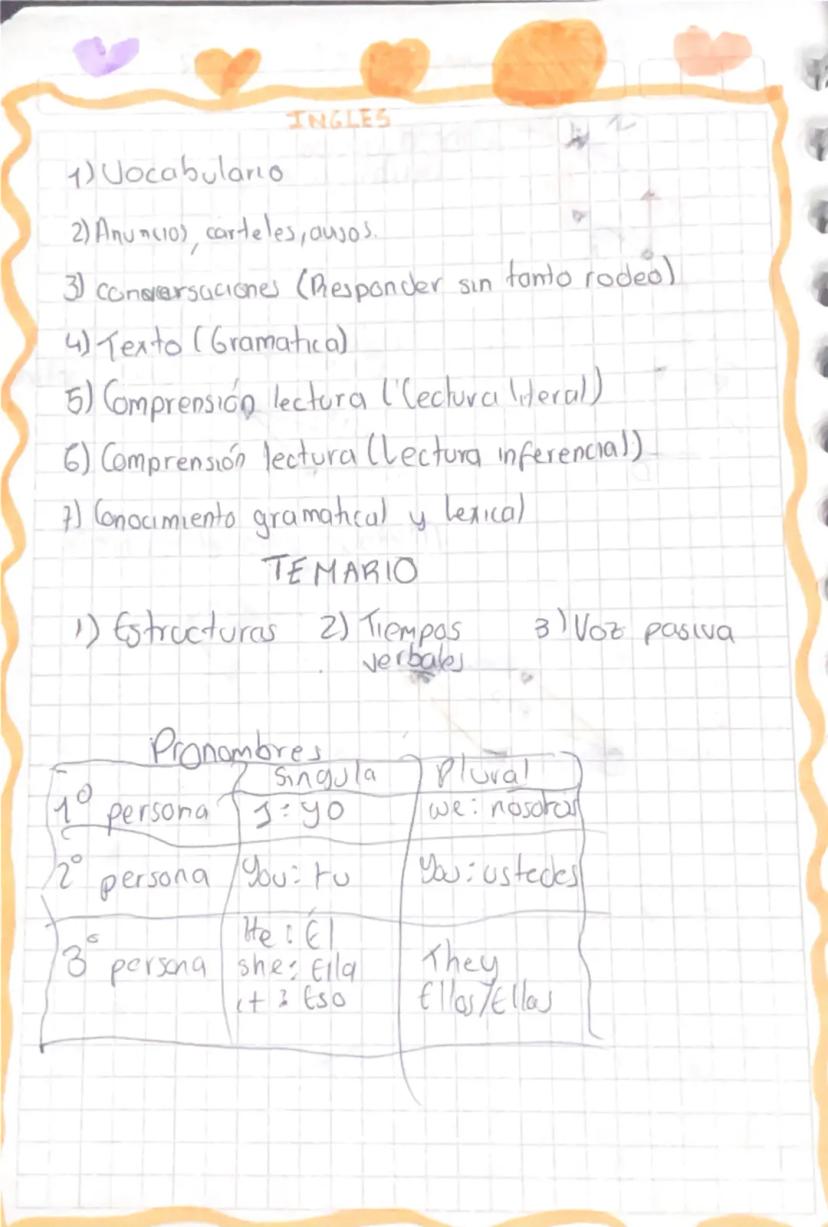 INGLES
1) Vocabulario
2) Anuncios, carteles, avisos.
3) conversaciones (Responder sin tanto rodeo)
4) Texto (Gramatica)
5) Comprensión lectura (Lectura literal)
6) Comprensión lectura (Lectura inferencial)
7) Conocimiento gramatical y lexical
TEMARIO
1) Estructuras 2) Tiempos verbales 3) Voz pasiva
Pronombres
Singula Plural
1º persona I: yo we: nosotros
2º persona You: tu You: ustedes
3º persona He: Él
she: Ella They
it: Eso Ellos/Ellas